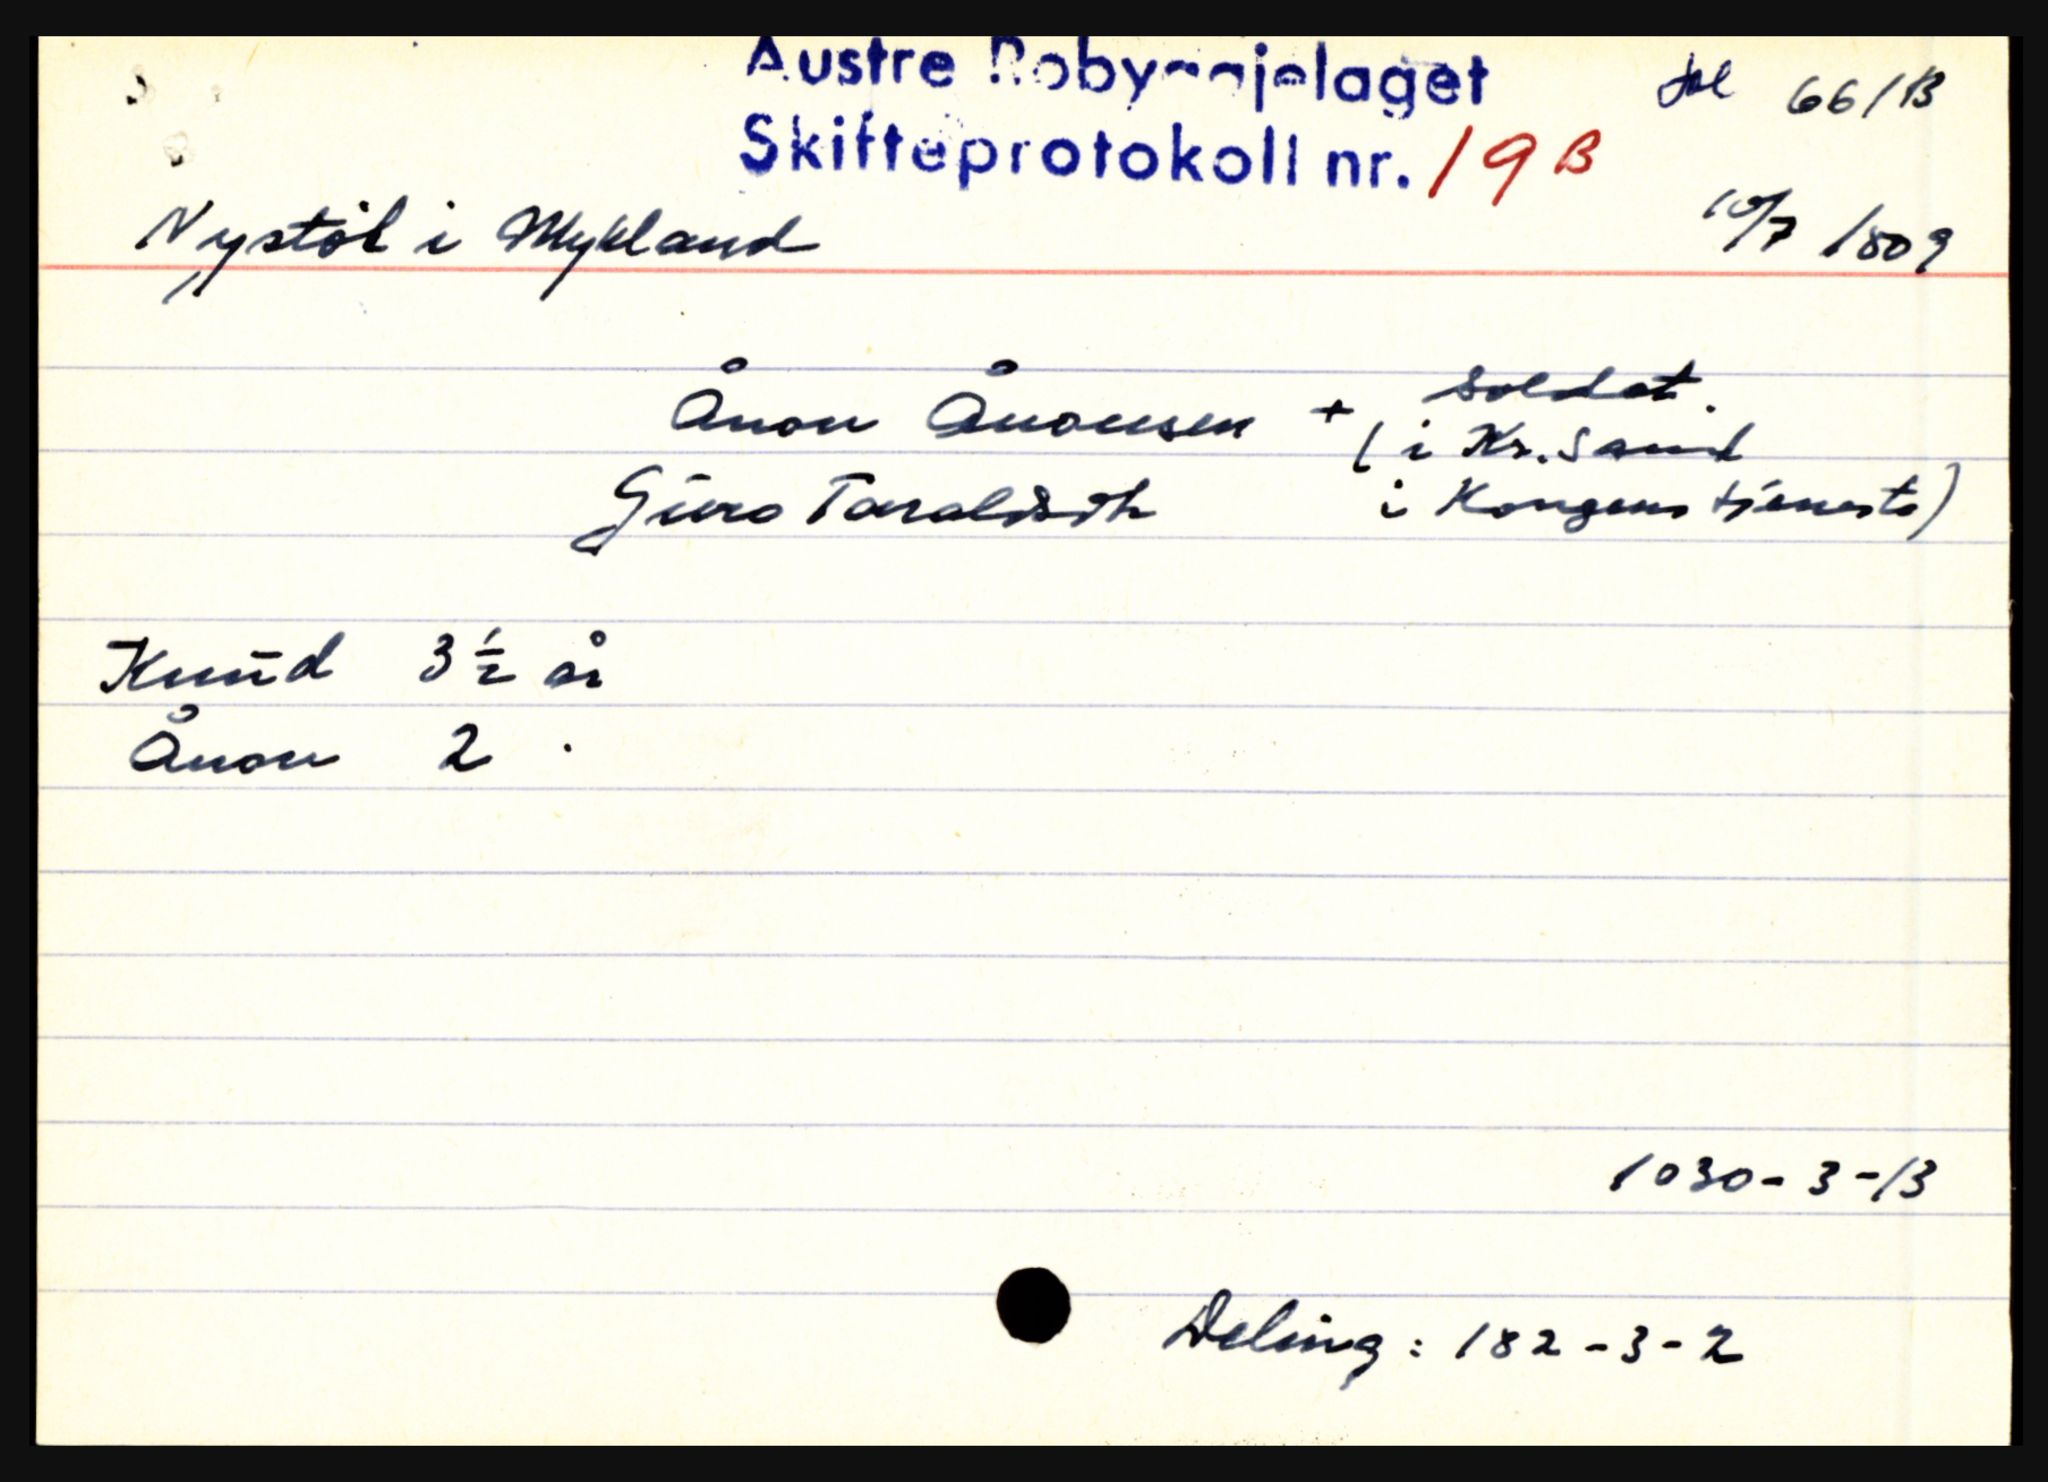 Austre Robyggjelaget fol 661B
Skifteprotokoll nr. 19 B
Nystøl i Mykland 10/7 1809
Ånon Ånonsen + soldat.
( i Kr. Sand
Guro Taraldsdtr i Kongens tjeneste)
Knud 3 1/2 år
Ånon 2 .
1030 - 3 - 13
Deling : 182 - 3 - 2